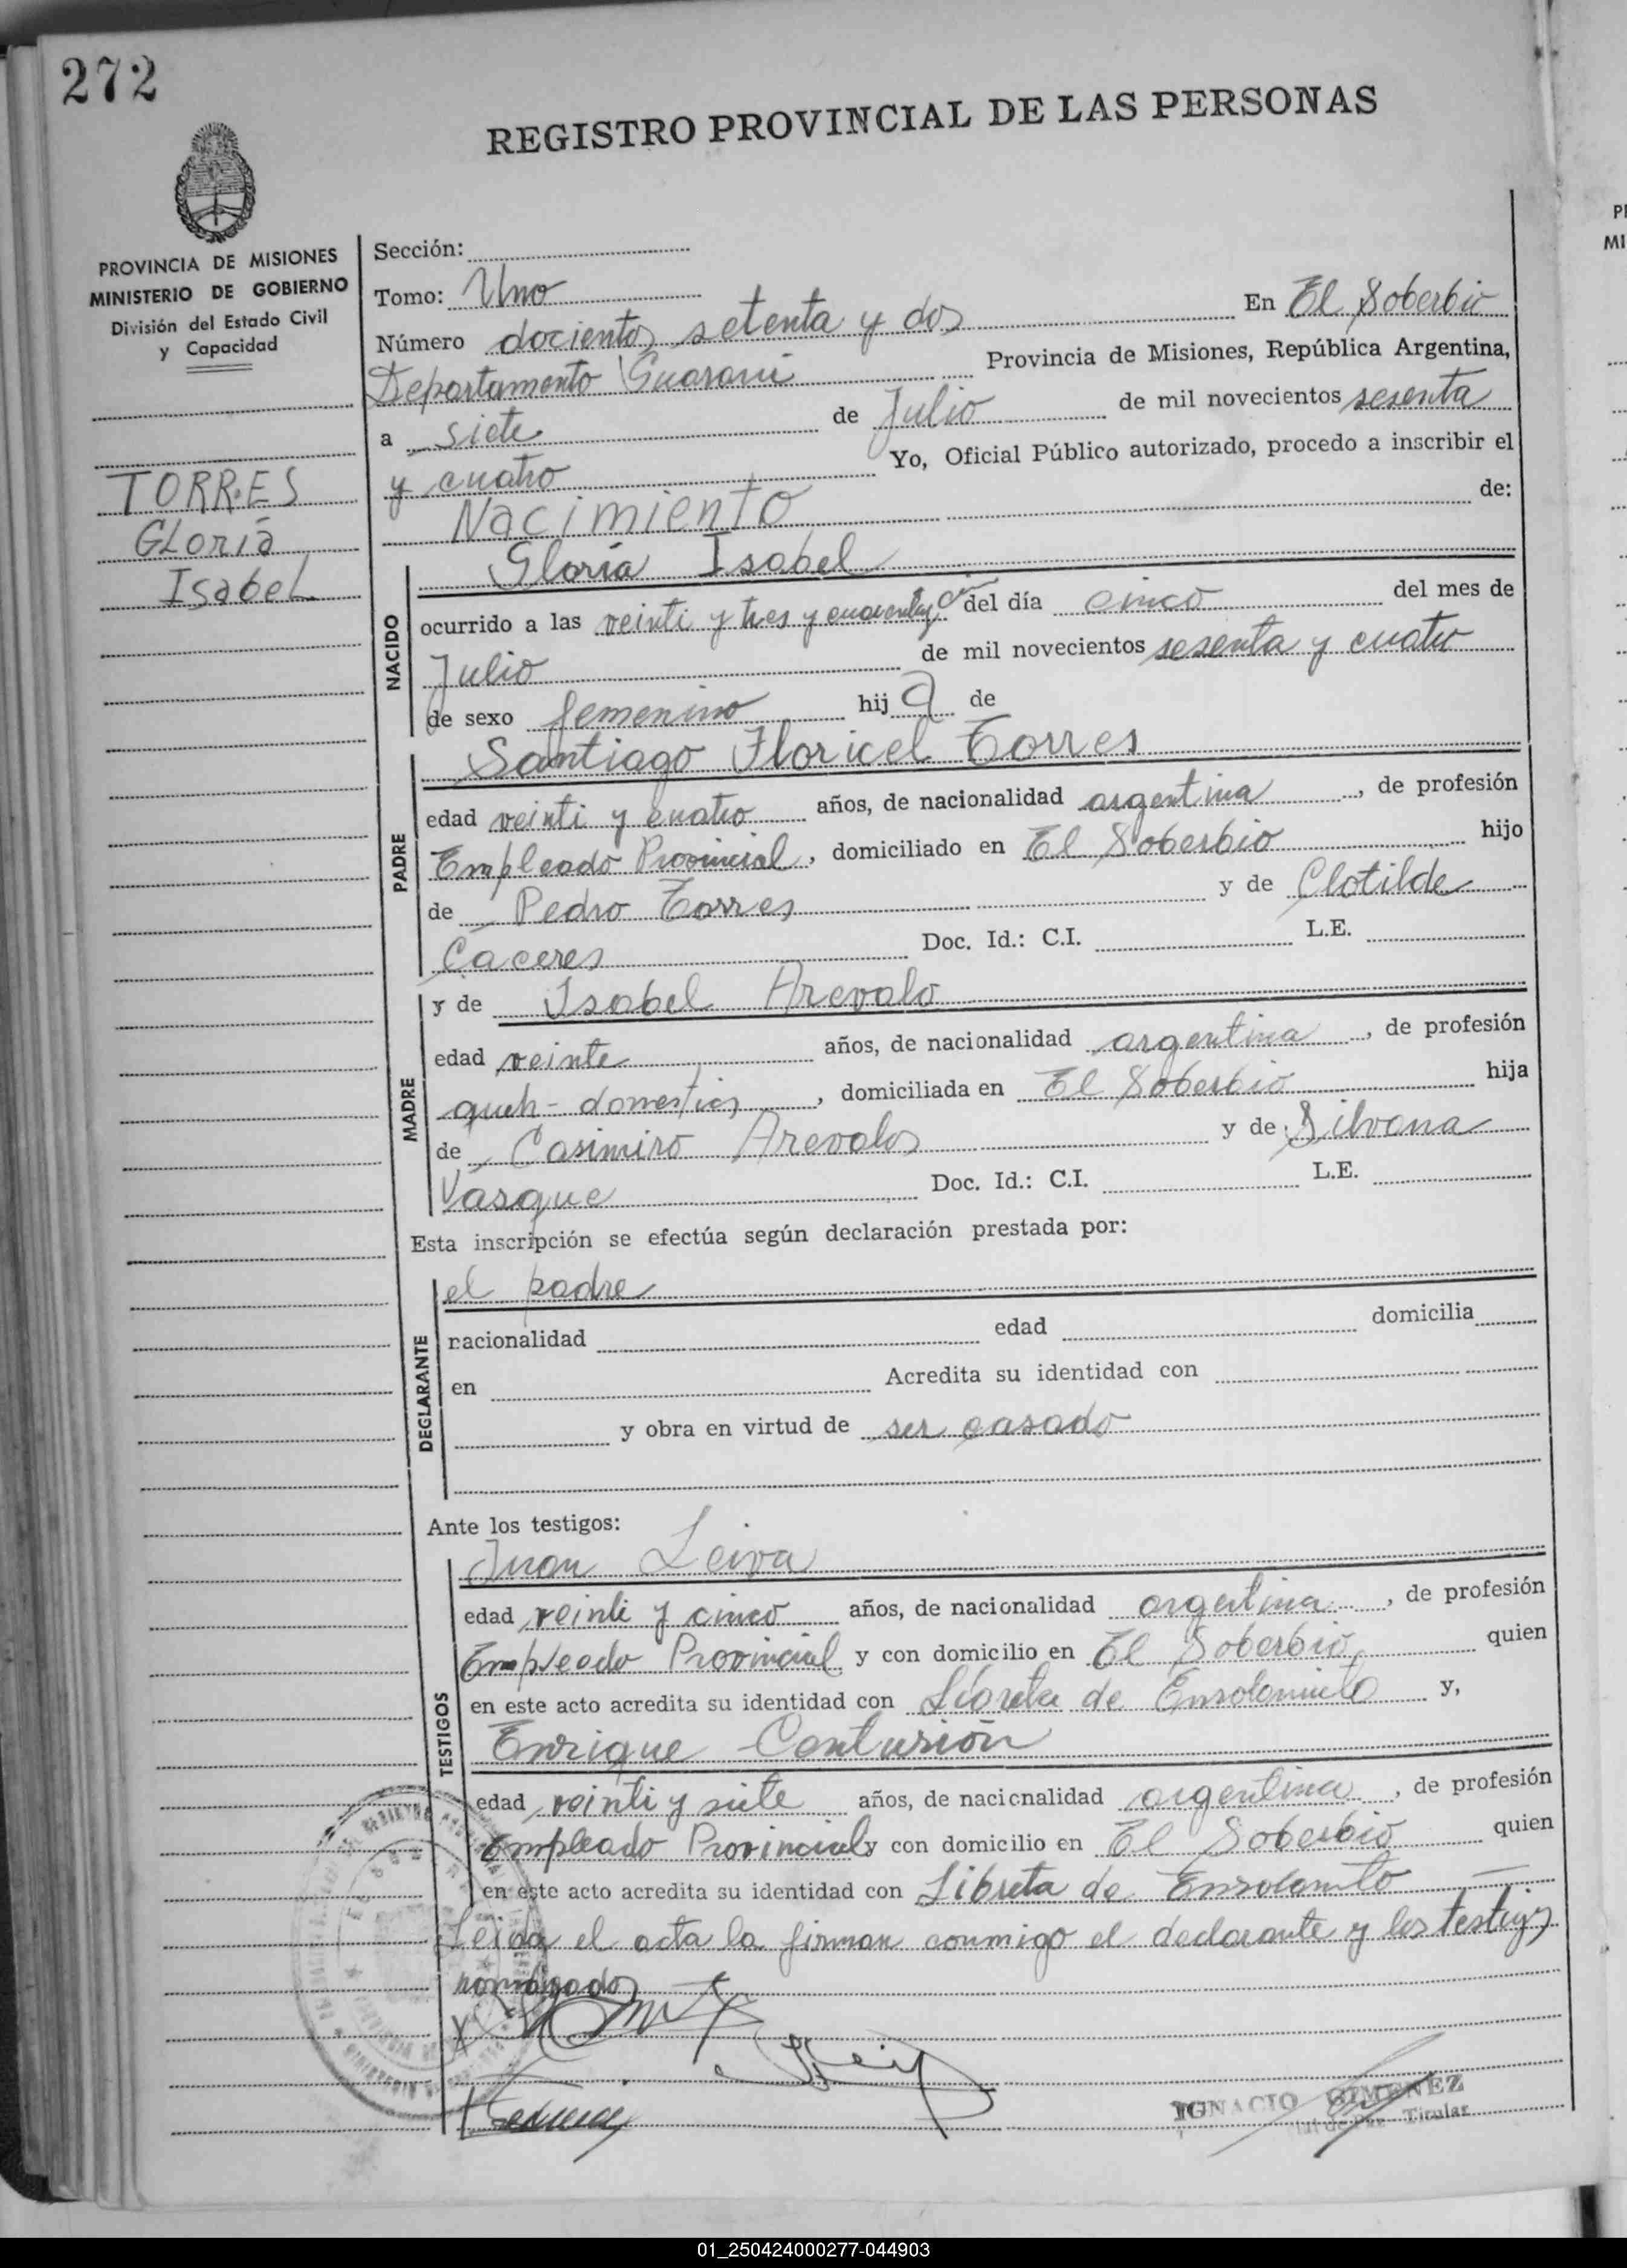 272
REGISTRO PROVINCIAL DE LAS PERSONAS
PROVINCIA DE MISIONES
MINISTERIO DE GOBIERNO
División del Estado Civil
y Capacidad
TORRES
GLoria
IsabeL
Sección:
Tomo: Uno
Número docientos setenta y dos En El Soberbio
Departamento Guarani Provincia de Misiones, República Argentina,
a siete de Julio de mil novecientos sesenta
y cuatro Yo, Oficial Público autorizado, procedo a inscribir el
Nacimiento de:
Gloria Isabel
NACIDO
ocurrido a las veinti y tres y cuarenta del día cinco del mes de
Julio de mil novecientos sesenta y cuatro
de sexo femenino hija de
Santiago Floricel Torres
PADRE
edad veinti y cuatro años, de nacionalidad argentina, de profesión
Empleado Provincial, domiciliado en El Soberbio hijo
de Pedro Torres y de Clotilde
Caceres Doc. Id.: C.I. L.E.
MADRE
y de Isabel Arevalo
edad veinte años, de nacionalidad argentina, de profesión
queh-domesticos, domiciliada en El Soberbio hija
de Casimiro Arevalos y de Silvana
Vasque Doc. Id.: C.I. L.E.
Esta inscripción se efectúa según declaración prestada por:
DECLARANTE
el padre
nacionalidad edad domicilia
en Acredita su identidad con
y obra en virtud de ser casado
Ante los testigos:
TESTIGOS
Juan Leiva
edad veinti y cinco años, de nacionalidad argentina, de profesión
Empleado Provincial y con domicilio en El Soberbio quien
en este acto acredita su identidad con Libreta de Enrolamiento y,
Enrique Contursión
edad veinti y siete años, de nacionalidad argentina, de profesión
Empleado Provincial y con domicilio en El Soberbio quien
en este acto acredita su identidad con Libreta de Enrolamto
Leida el acta la firman conmigo el declarante y los testigos
nombrados
IGNACIO GIMENEZ
Titular
01_250424000277-044903